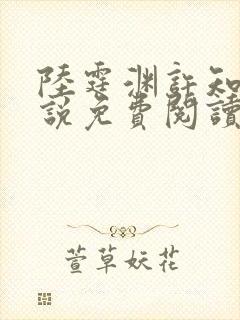 陸霆淵許知
說免費閱讀
萱草妖花